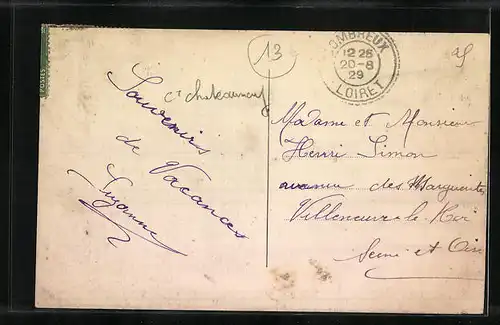 POSTES
13
COMBREUX
12 25
20-8
29
LOIRET
cⁿ chateauneuf
Souvenirs
de Vacances
Suzanne
Madame et Monsieur
Henri Simon
avenue des Marguerites
Villeneuve-le-Roi
Seine et Oise